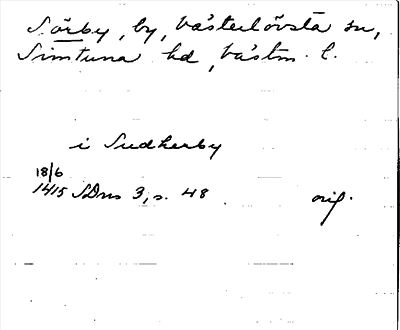 Sörby, by, Västerlövsta sn,
Simtuna hd, Västm. l.
i Sudherby
18/6
1415 SDns 3, s. 48 orig.